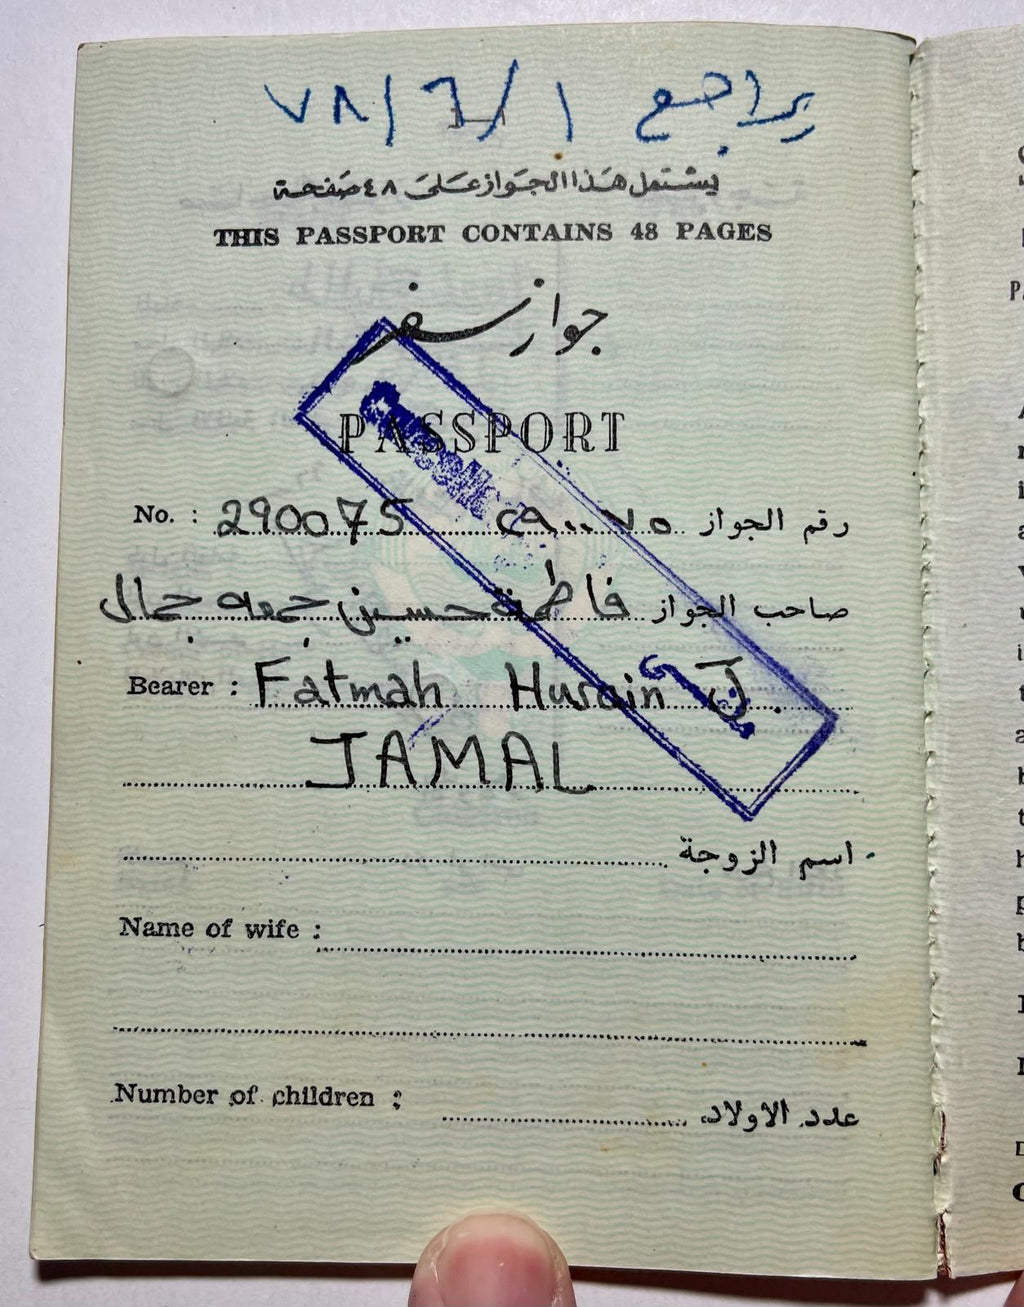 يراجع ١/٦/٧٨
يشتمل هذا الجواز على ٤٨ صفحة
THIS PASSPORT CONTAINS 48 PAGES
جواز سفر
PASSPORT
No. : 290075 ٢٩٠٠٧٥ رقم الجواز
صاحب الجواز فاطمة حسين جمعه جمال
Bearer : Fatmah Husain
JAMAL
اسم الزوجة
Name of wife :
Number of children : عدد الاولاد